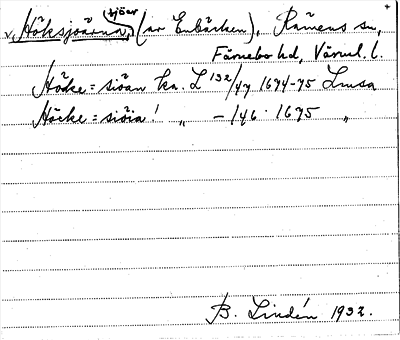 v. Höksjöarna, tjöar (av Enbärken), Rämens sn,
Färnebo hd, Värml. l.
Höcke = siöan ka. L 132/47 1674-75 Lmsa
Höcke = siöia! „ - 146. 1675 „
B. Lindén 1932.